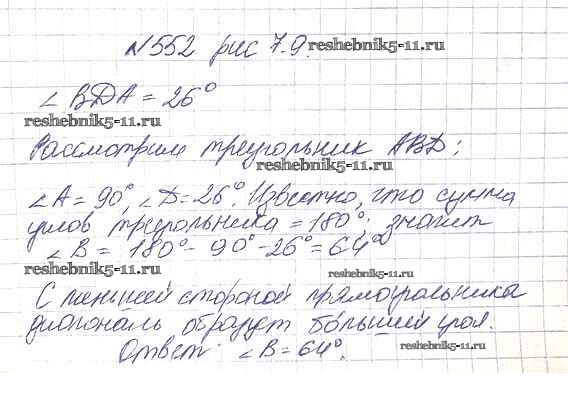 №552 рис 7.9.
reshebnik5-11.ru
∠ BDA = 26°
reshebnik5-11.ru
Рассмотрим треугольник ABD:
reshebnik5-11.ru
∠A = 90°, ∠D = 26°. Известно, что сумма
углов треугольника = 180°, значит
∠B = 180° - 90° - 26° = 64°
reshebnik5-11.ru
reshebnik5-11.ru
С меньшей стороной прямоугольника
диагональ образует больший угол.
Ответ: ∠B = 64°.
reshebnik5-11.ru